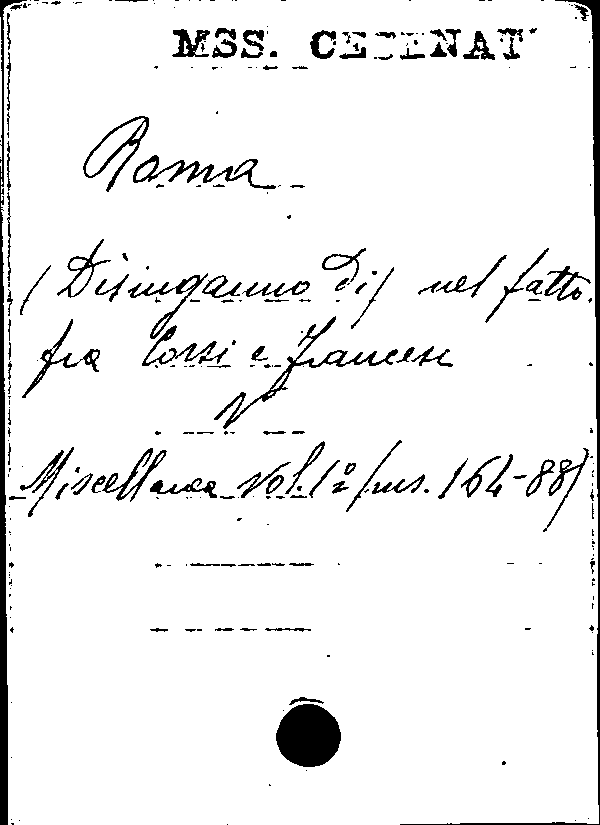 MSS. CESENAT
Roma
(Disinganno di) nel fatto
fra Corsi e Francesi
V
Miscellanea vol. 1º (ms. 164-88)